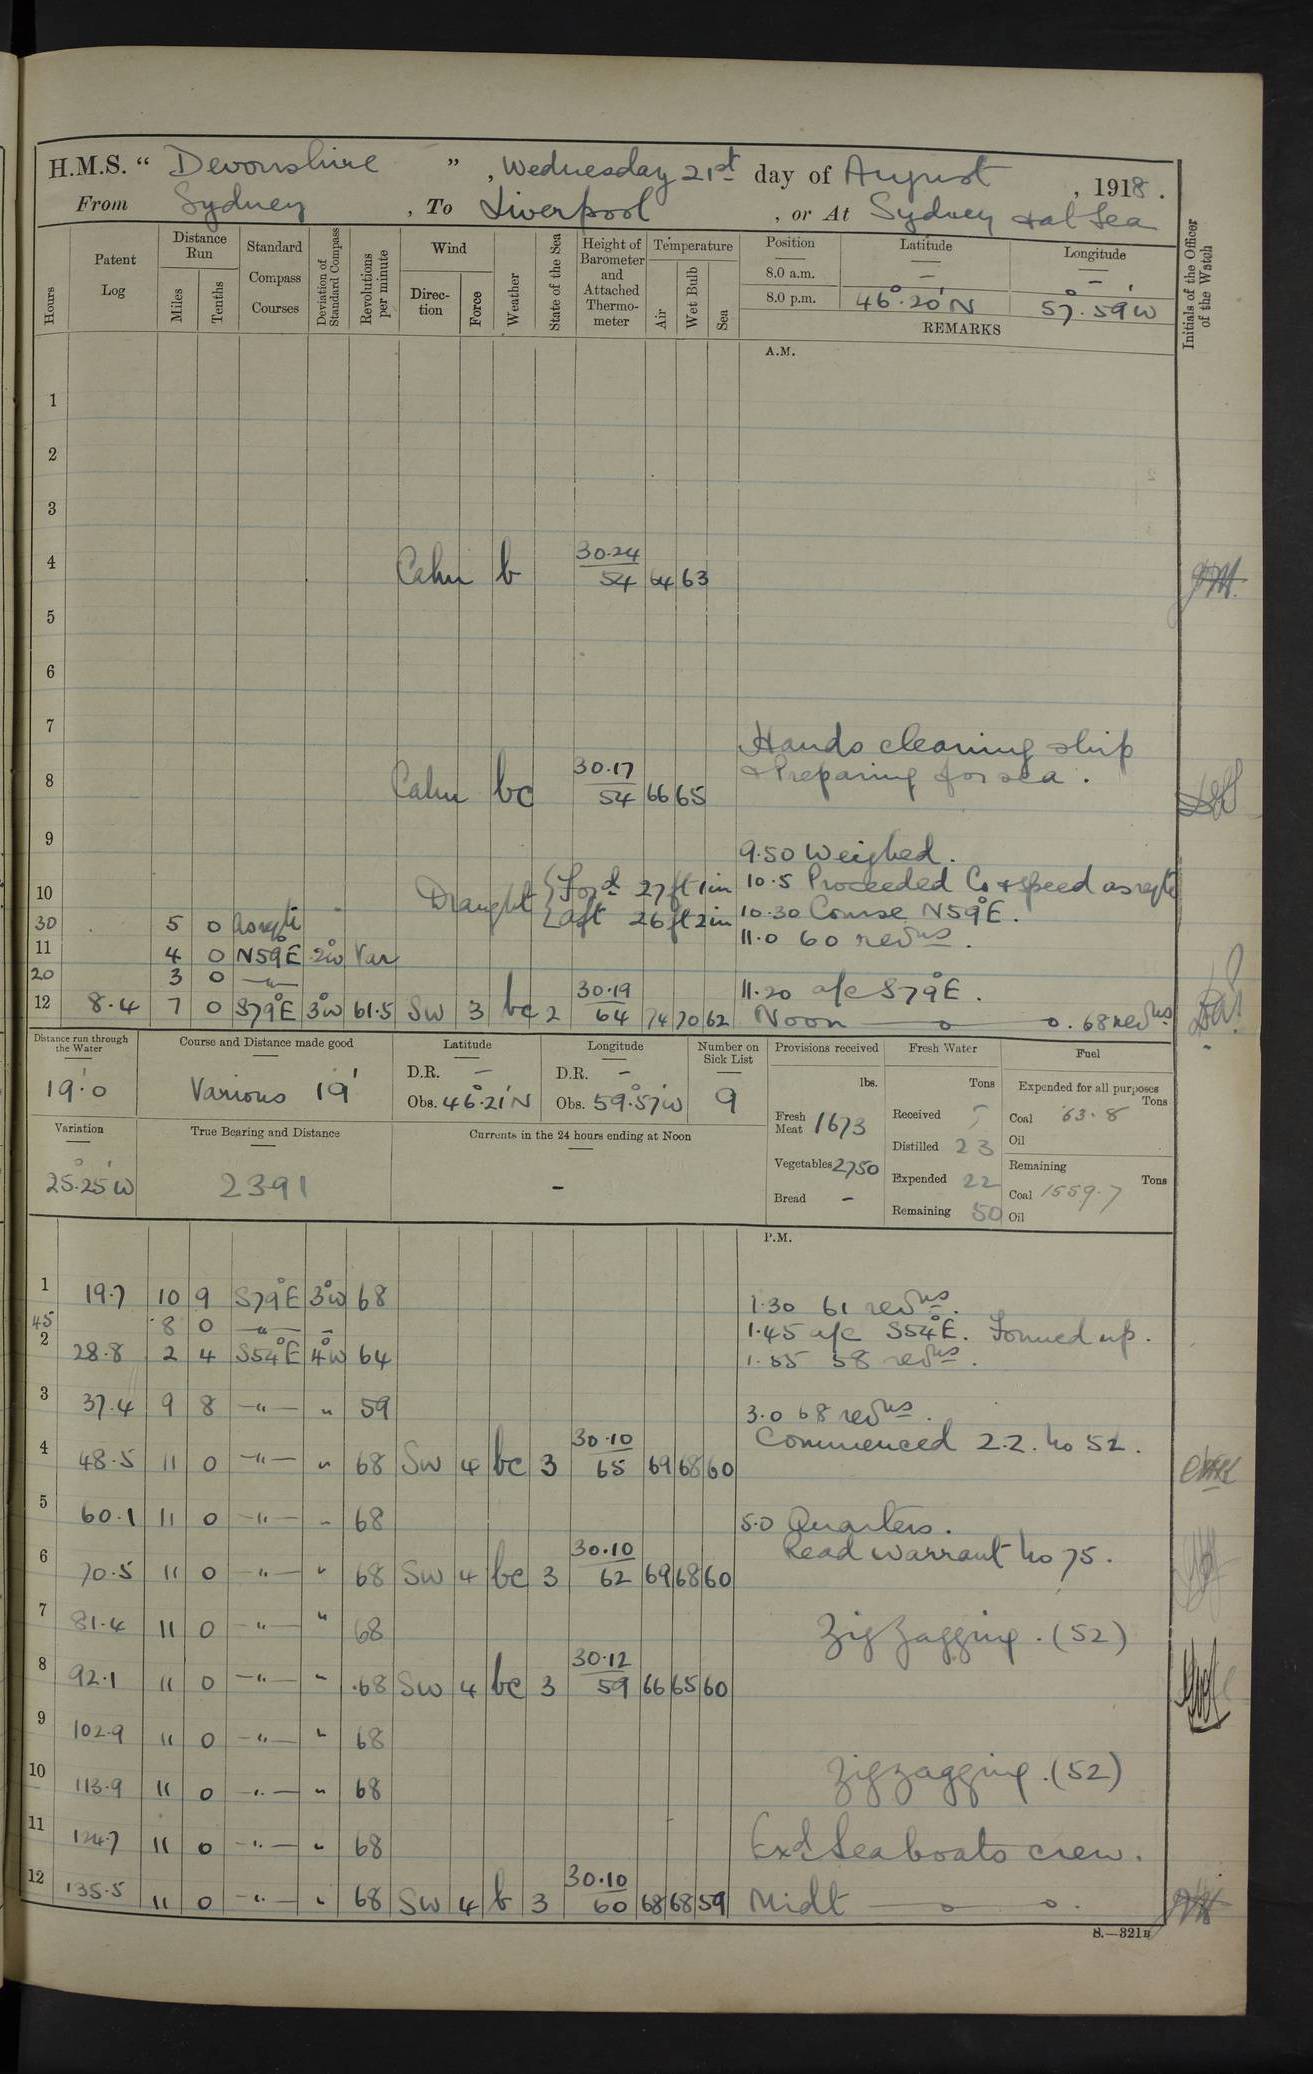 H.M.S. " Devonshire ", Wednesday 21st day of August, 1918.
From Sydney, To Liverpool, or At Sydney & at Sea
Hours
Patent Log
Distance Run
Miles
Tenths
Standard Compass Courses
Deviation of Standard Compass
Revolutions per minute
Wind
Direction
Force
Weather
State of the Sea
Height of Barometer and Attached Thermometer
Temperature
Air
Wet Bulb
Sea
Position Latitude Longitude
8.0 a.m. — —
8.0 p.m. 46°.20'N 57°.59'W
REMARKS
Initials of the Officer of the Watch
A.M.
1
2
3
4 Calm b 30.24 54 64 63
5
6
7
Hands cleaning ship
8 Calm bc 30.17 54 66 65 & Preparing for sea.
9
9.50 Weighed.
10 Draught { Ford 27 ft 1 in 10.5 Proceeded Co & speed as reqte
30 5 0 as reqte { aft 26 ft 2 in 10.30 Course N59°E.
11 4 0 N59°E 2°W Var 11.0 60 revns.
20 3 0 —"—
12 8.4 7 0 S79°E 3°W 61.5 SW 3 bc 2 30.19 64 74 70 62 11.20 a/c S79°E.
Noon — o — o. 68 revns
Distance run through the Water
19'.0
Course and Distance made good
Various 19'
Latitude
D.R. —
Obs. 46°.21'N
Longitude
D.R. —
Obs. 59°.57'W
Number on Sick List
9
Provisions received
lbs.
Fresh Meat 1673
Vegetables 2750
Bread -
Fresh Water
Tons
Received
Distilled 23
Expended 22
Remaining 50
Fuel
Expended for all purposes
Tons
Coal 63.8
Oil
Remaining
Tons
Coal 1559.7
Oil
Variation
25°.25'W
True Bearing and Distance
2391
Currents in the 24 hours ending at Noon
-
P.M.
1 19.7 10 9 S79°E 3°W 68 1.30 61 revns.
45 8 0 —"— — 1.45 a/c S54°E. Formed up.
2 28.8 2 4 S54°E 4°W 64 1.55 58 revns.
3 37.4 9 8 —"— " 59 3.0 68 revns.
Commenced Z.Z. No 52.
4 48.5 11 0 —"— " 68 SW 4 bc 3 30.10 65 69 68 60
5 60.1 11 0 —"— " 68 5.0 Quarters.
Read Warrant No 75.
6 70.5 11 0 —"— " 68 SW 4 bc 3 30.10 62 69 68 60
7 81.4 11 0 —"— " 68 Zig Zagging. (52)
8 92.1 11 0 —"— " 68 SW 4 bc 3 30.12 59 66 65 60
9 102.9 11 0 —"— " 68
10 113.9 11 0 —"— " 68 Zigzagging. (52)
11 124.7 11 0 —"— " 68 Exd Seaboats crew.
12 135.5 11 0 —"— " 68 SW 4 b 3 30.10 60 68 68 59 Midt — o — o.
S.—321B